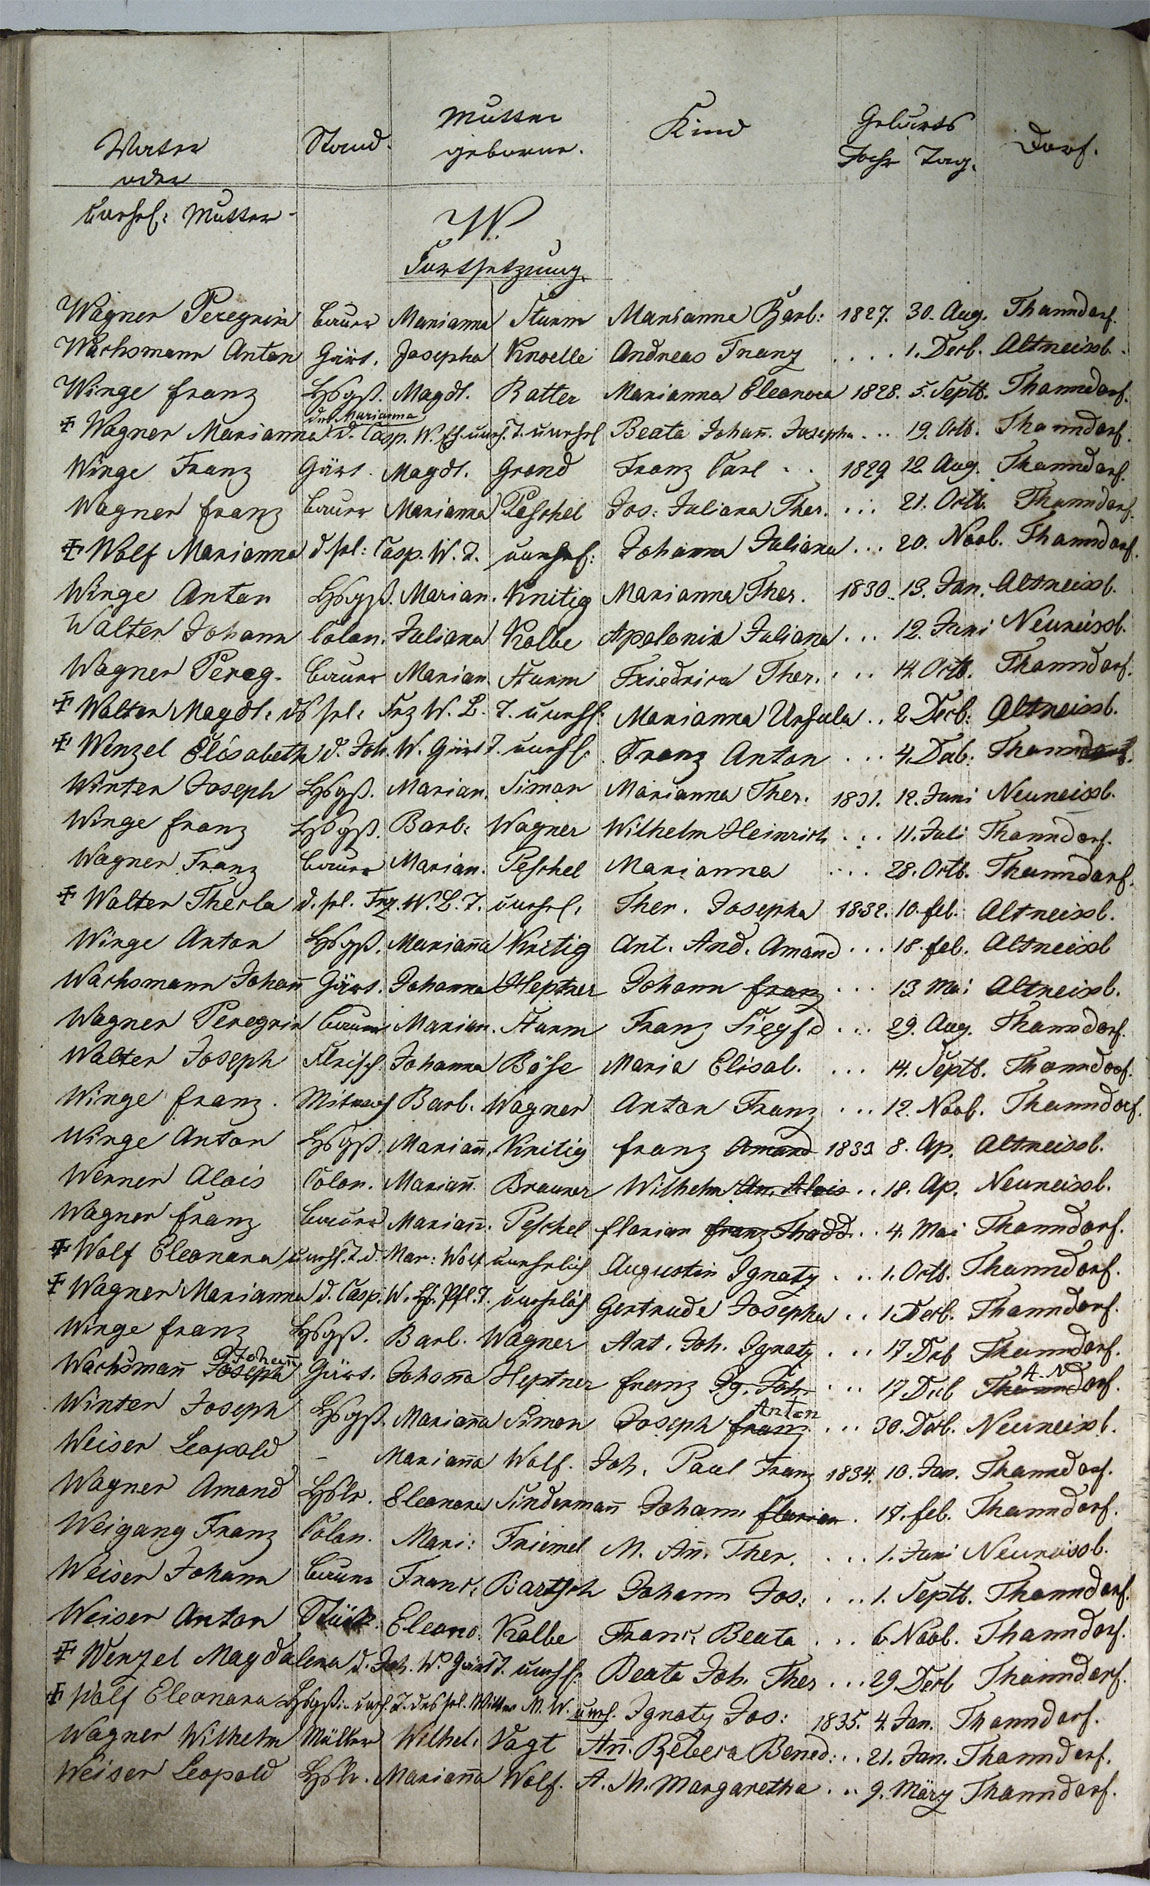 Vater Stand. Mutter Kind Geburts Dorf.
oder geborne. Jahr Tag.
unehel: Mutter
W.
Fortsetzung.
Wagner Peregrin Bauer Marianna Sturm Marianna Barb: 1827. 30. Aug. Thanndorf.
Wachsmann Anton Gärt. Josepha Knoelle Andreas Franz .... 1. Decb. Altneissb.
Winge Franz Hsgß. Magdl. Ratter Marianna Eleanora 1828. 5. Septb. Thanndorf.
des Marianna
Wagner Marianna d. Casp. W. T. unehel Beata Johan̄. Josepha ... 19. Octb. Thanndorf.
Winge Franz Gärt. Magdl. Grond Franz Carl .. 1829. 12. Aug. Thanndorf.
Wagner Franz Bauer Marianna Peschel Jos: Juliana Ther. ... 21. Octb. Thanndorf.
Wolf Marianna d. sel: Casp. W. T. unehel: Johanna Juliana ... 20. Novb. Thanndorf.
Winge Anton Hsgß. Marian. Knitig Marianna Ther. 1830. 13. Jan. Altneissb.
Walter Johann Colon. Juliana Kolbe Apolonia Juliana ... 12. Juni Neuneissb.
Wagner Pereg. Bauer Marian. Sturm Friedrica Ther. ... 14. Octb. Thanndorf.
Walter Magdl. ds sel: Frz W. L. T. unehl. Marianna Ursula .. 2. Decb: Altneissb.
Wenzel Elisabeth d. Joh. W. Gärt T. unehl. Franz Anton ... 4. Dcb: Thanndorf.
Winter Joseph Hsgß. Marian. Simon Marianna Ther. 1831. 12. Juni Neuneissb.
Winge Franz Hsgß. Barb: Wagner Wilhelm Heinrich ... 11. Juli Thanndorf.
Wagner Franz Bauer Marian. Peschel Marianna ... 28. Octb. Thanndorf.
Walter Thecla d. sel. Frz. W. L. T. unehel. Ther. Josepha 1832. 10. feb. Altneissb.
Winge Anton Hsgß. Mariana̅ Knitig Ant. And. Amand ... 18. feb. Altneissb
Wachsmann Johan̅ Gärt. Johanna Heptner Johann Franz ... 13 Mai Altneissb.
Wagner Peregrin Bauer Marian. Sturm Franz Siegfd ... 29. Aug. Thanndorf.
Walter Joseph Fleisch. Johanna Böse Maria Elisab. ... 14. Septb. Thanndorf.
Winge Franz. Barb. Wagner Anton Franz ... 12. Novb. Thanndorf.
Winge Anton Hsgß. Marian̅. Knitig Franz Amand 1833 8. Ap. Altneissb.
Werner Alois Colon. Marian̅. Brauner Wilhelm An. Alois .. 18. Ap. Neuneissb.
Wagner Franz Bauer Marian̅. Peschel Florian Franz Thadd. .. 4. Mai Thanndorf.
Wolf Eleonora unehl. T. d. Mar: Wolf unehelich Augustin Ignatz ... 1. Octb. Thanndorf.
Wagner Marianna d. Casp. W. T. unehelich Gertrude Josepha .. 1. Decb. Thanndorf.
Winge Franz Hsgß. Barb. Wagner Ant. Joh. Ignatz ... 17. Dcb Thanndorf.
Johan̅ A. N.
Wachsman̅ Joseph Gärt. Johan̅a Heptner Franz Ig. Joh. ... 17. Dcb Thanndorf.
Anton
Winter Joseph Hsgß. Marian̅a Simon Joseph Franz ... 30. Dcb. Neuneissb.
Weiser Leopold - Marian̅a Wolf. Joh. Paul Franz 1834. 10. Jan. Thanndorf.
Wagner Amand Hslr. Eleanora Linderman̅ Johann Florian . 17. feb. Thanndorf.
Weigang Franz Colon. Mari: Friemel M. An̅. Ther. ... 1. Juni Neuneissb.
Weiser Johann Bauer Franc: Bartsch Johann Jos: ... 1. Septb. Thanndorf.
Weiser Anton Stück. Eleano. Kolbe Franc: Beata ... 6 Novb. Thanndorf.
Wenzel Magdalena d. Joh. W. Gärt T. unehl. Beata Joh. Ther ... 29. Decb Thanndorf.
Wolf Eleonora Hsgß. unehl. T. des sel. M. W. unehl. Ignatz Jos: 1835. 4. Jan. Thanndorf.
Wagner Wilhelm Müller Wilhel. Vogt An̅. Rebeca Bened: .. 21. Jan. Thanndorf.
Weiser Leopold Hslr. Marian̅a Wolf. A. M. Margaretha ... 9. März Thanndorf.